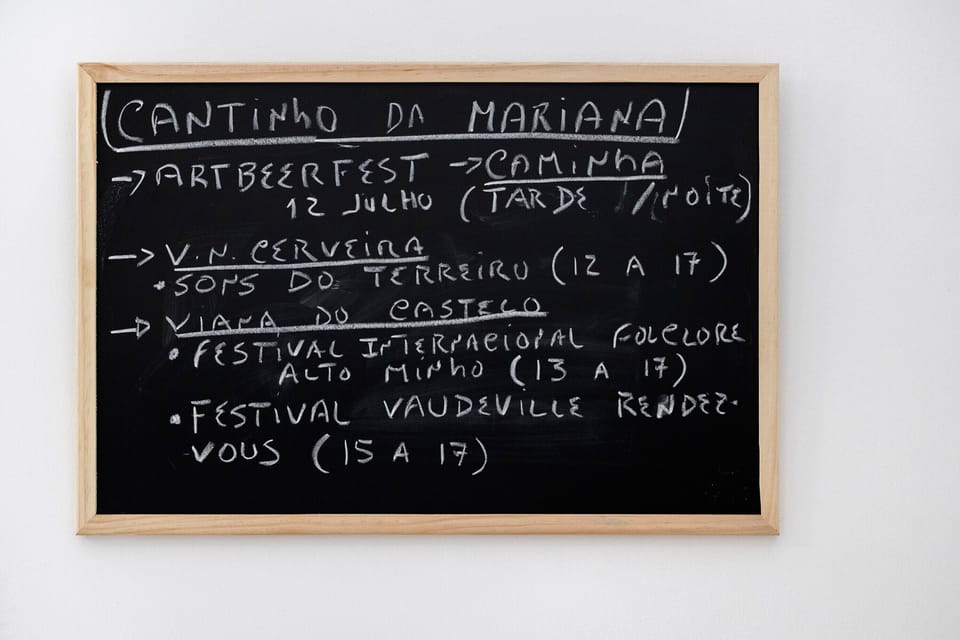 CANTINHO DA MARIANA
→ ARTBEERFEST → CAMINHA
12 JULHO (TARDE / NOITE)
→ V.N. CERVEIRA
• SONS DO TERREIRO (12 A 17)
→ VIANA DO CASTELO
• FESTIVAL INTERNACIONAL FOLCLORE
ALTO MINHO (13 A 17)
• FESTIVAL VAUDEVILLE RENDEZ-
VOUS (15 A 17)